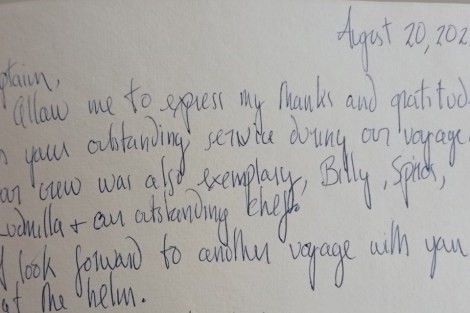 August 20, 202
ptain,
Allow me to express my thanks and gratitud
your outstanding service during our voyage.
crew was also exemplary, Billy, Spiros,
udmilla + our outstanding chef.
I look forward to another voyage with you
at the helm.